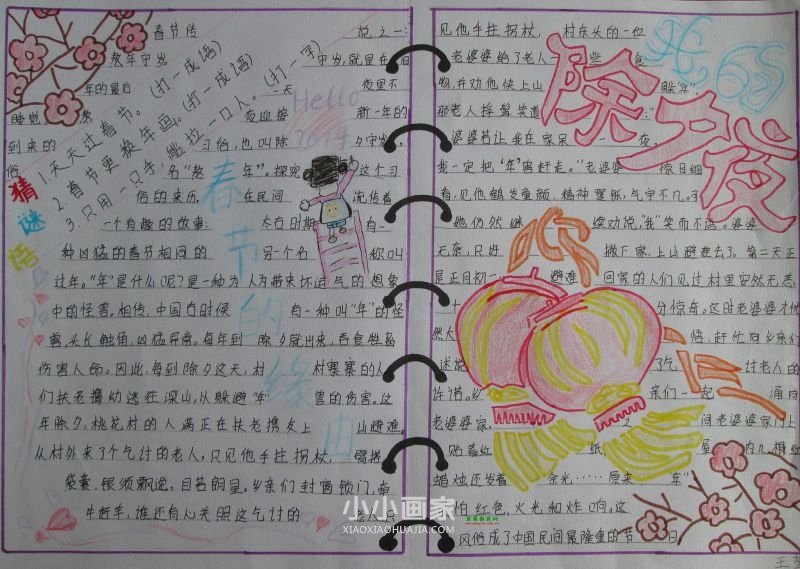 春节传
说之一:
熬年守岁
守岁,就是在旧
年的最后
一天
夜里不
睡觉,熬
夜迎接
新一年的
到来的
习俗,也叫除
夕守岁,
俗
名“熬
年”。探究
这个习
俗的来历,
在民间
流传着
一个有趣的故事:
太古时期
有一
种凶猛的
过年。“年”是什么呢?是一种为人带来坏运气的想象
中的怪害。相传,中国古时候
有一种叫“年”的怪
兽,头长触角,凶猛异常。每年到
除夕就出来,吞食牲畜
伤害人命。因此,每到除夕这天,村
村寨寨的人
们扶老携幼逃往深山,以躲避“年”
兽的伤害。这
年除夕,桃花村的人
正在扶老携
山避难。
从村外来了个乞讨的老人,只见他手拄拐杖,
臂搭
袋囊,银须飘逸,目若朗星。乡亲们封窗锁门,
牛赶羊,谁还有心关照这乞讨的
猜谜语
1.天天过春节。(打一成语)
2.春节更换年画。(打一成语)
3.只用一只手
拉一口人。(打一字)
Hello
2019
春节的缘由
见他手拄拐杖,
村东头的一位
老婆婆给了老人一
些
食
物,并劝他快上山
躲“年”
那老人捋髯笑道
婆婆若让我在家呆
一
夜,
我一定把‘年’兽赶走。”老婆婆
惊目细
看,见他鹤发童颜、精神矍铄,气宇不凡。
她仍然继
续劝说,
笑而不语。婆婆
无奈,只好
撇下家,上山避难去了。第二天正
是正月初一
避难
回家的人们见过村里安然无恙,
十
分惊奇。这时老婆婆才
然大
悟,赶忙向乡亲们
述说
了乞
讨老人的
许诺。
亲们一起
涌向
老婆婆家,
间老婆婆家门上
贴着红
纸,
屋
内
蜡烛还发着
余光……原来
“年”
怕红色,火光和炸响。这
风俗成了中国民间最隆重的节
日
除夕夜
我的
小小画家
XIAOXIAOHUAJIA.COM